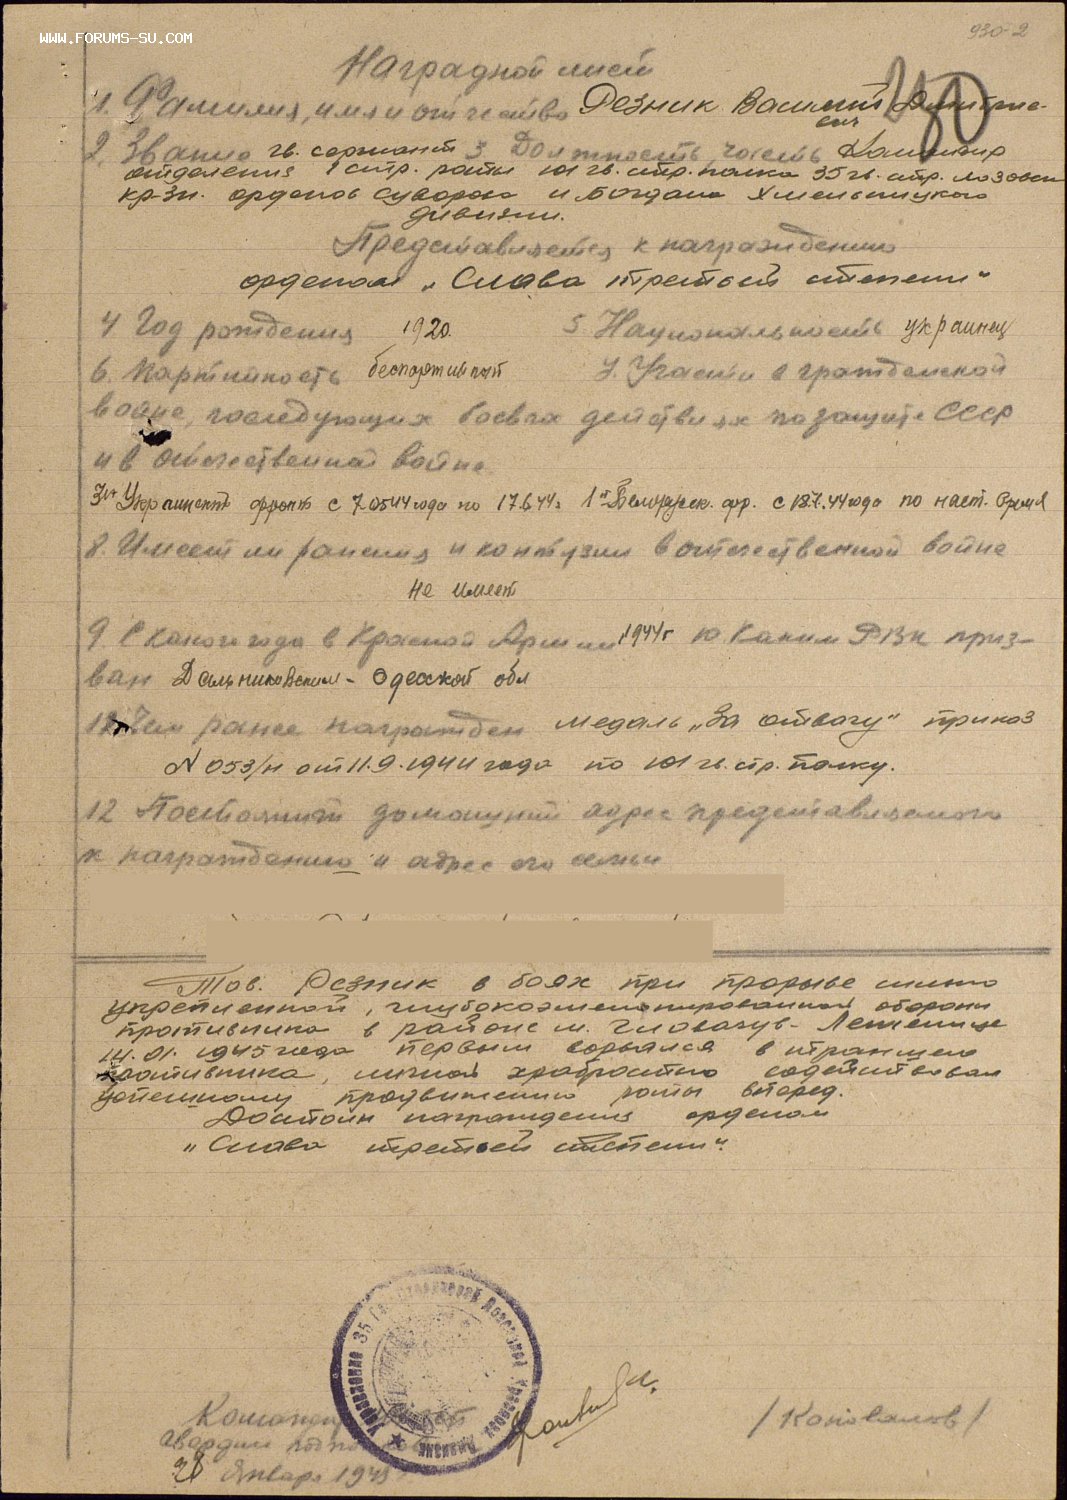 WWW.FORUMS-SU.COM
930-2
Наградной лист
1. Фамилия, имя и отчество Резник Василий Дмитрие-
вич
2. Звание гв. сержант 3 Должность, часть Командир
отделения 1 стр. роты 101 гв. стр. полка 35 гв. стр. лозовск
кр-зн. орденов Суворова и Богдана Хмельницкого
дивизии.
Представляется к награждению
орденом „Слава третьей степени“
4 Год рождения 1920. 5. Национальность украинец
6. Партийность беспартийный 7. Участие в гражданской
войне, последующих боевых действиях по защите СССР
и в отечественной войне
3й Украинский фронт с 7.05.44 года по 17.6.44г 1й Белорусск. фр. с 18.7.44 года по наст. время
8. Имеет ли ранения и контузии в отечественной войне
не имеет
9. С какого года в Красной Армии 1944г 10 Каким РВК приз-
ван Дальниковским - Одесской обл
11. Чем ранее награжден медаль „За отвагу“ приказ
N 053/н от 11.9.1944 года по 101 гв. стр. полку.
12 Постоянный домашний адрес представляемого
к награждению и адрес его семьи
Тов. Резник в боях при прорыве сильно
укрепленной, глубокоэшелонированной обороны
противника в районе м. Гловачув - Леженице
14.01.1945 года первым ворвался в траншею
противника, личной храбростью содействовал
успешному продвижению роты вперед.
Достоин награждения орденом
„Слава третьей степени“.
Управление 35 Гв. Стрелковой Лозовской Краснозн. Дивизии
Командир
гвардии подполков
28 Января 1945
/Коновалов/